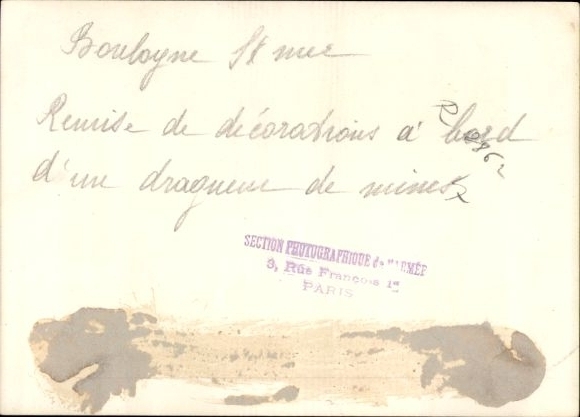 Boulogne S/ mer
Remise de décorations à bord
d'une dragueur de mines
R 862
SECTION PHOTOGRAPHIQUE de L'ARMÉE
3, Rue François 1er
PARIS